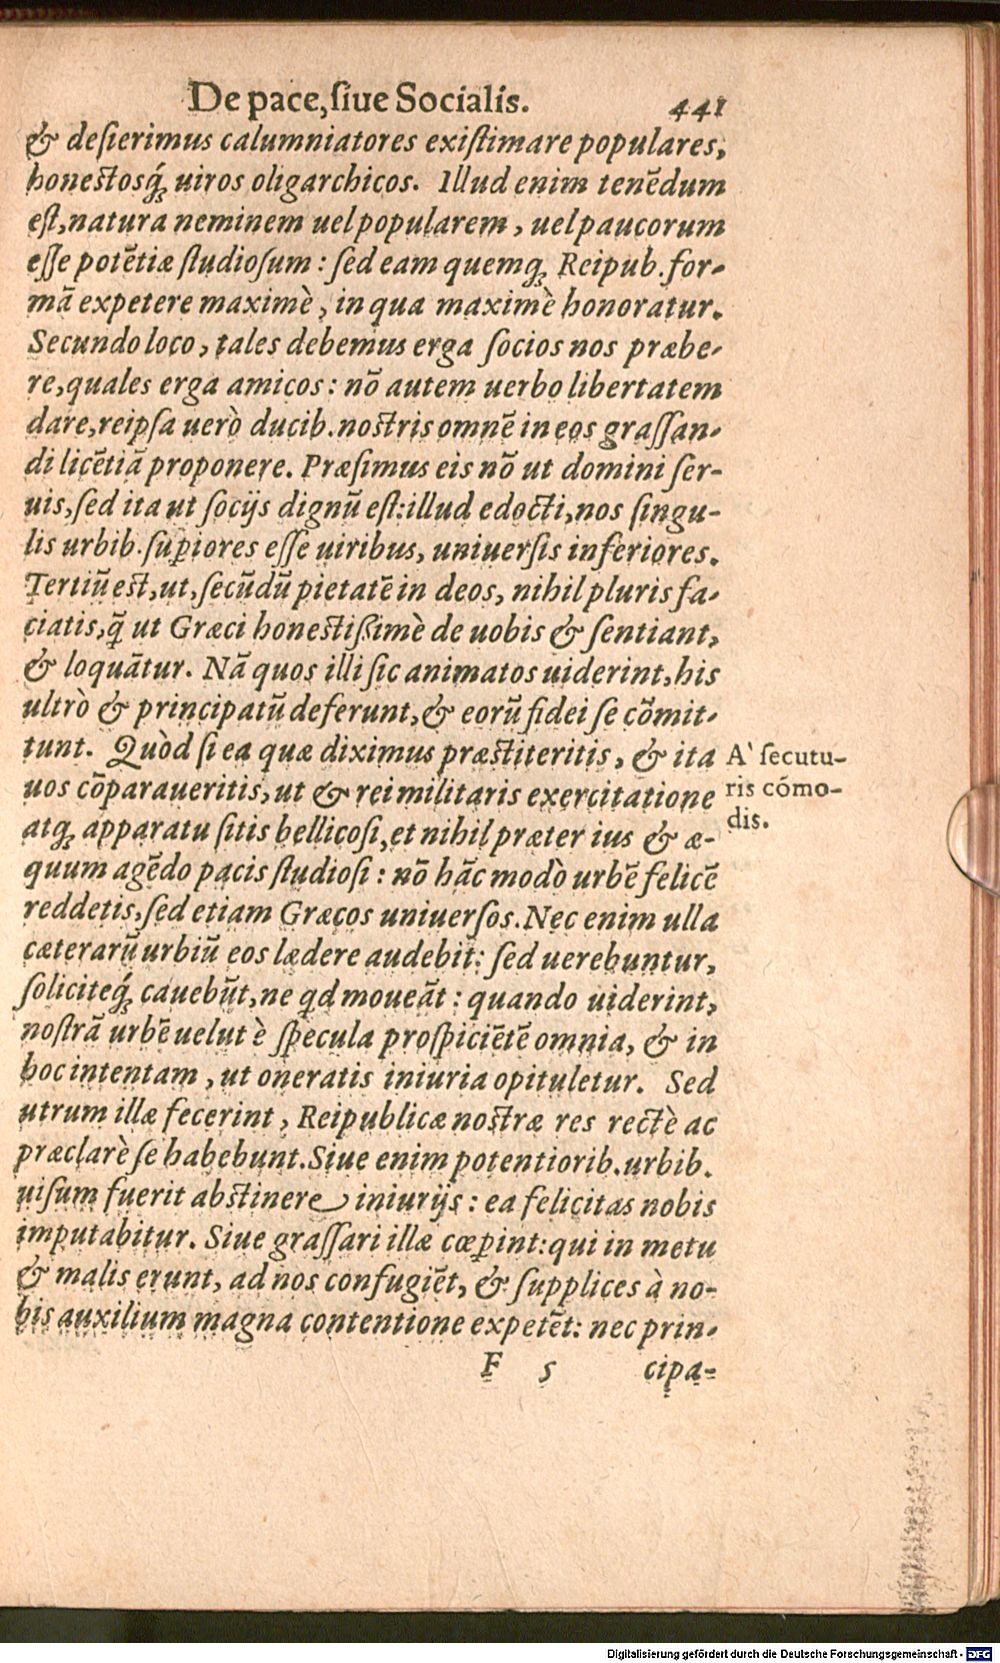 De pace, ſiue Socialis. 441
& deſierimus calumniatores exiſtimare populares,
honeſtosq́; uiros oligarchicos. Illud enim tenẽdum
eſt, natura neminem uel popularem, uel paucorum
eſſe potẽtiæ ſtudioſum: ſed eam quemq; Reipub. for-
mã expetere maximè, in qua maximè honoratur.
Secundo loco, tales debemus erga ſocios nos præbe-
re, quales erga amicos: nõ autem uerbo libertatem
dare, reipſa uerò ducib. noſtris omnẽ in eos graſſan-
di licẽtiã proponere. Præſimus eis nõ ut domini ſer-
uis, ſed ita ut ſocijs dignũ eſt: illud edocti, nos ſingu-
lis urbib. ſuꝑiores eſſe uiribus, uniuerſis inferiores.
Tertiũ eſt, ut, ſecũdũ pietatẽ in deos, nihil pluris fa-
ciatis, q̃ ut Græci honeſtißimè de uobis & ſentiant,
& loquãtur. Nã quos illi ſic animatos uiderint, his
ultrò & principatũ deferunt, & eorũ fidei ſe cõmit-
tunt. Quòd ſi ea quæ diximus præſtiteritis, & ita
uos cõparaueritis, ut & rei militaris exercitatione
atq; apparatu ſitis bellicoſi, et nihil præter ius & æ-
quum agẽdo pacis ſtudioſi: nõ hãc modò urbẽ felicẽ
reddetis, ſed etiam Græcos uniuerſos. Nec enim ulla
cæterarũ urbiũ eos lædere audebit: ſed uerebuntur,
ſoliciteq́; cauebũt, ne qd moueãt: quando uiderint,
noſtrã urbẽ uelut è ſpecula proſpiciẽtẽ omnia, & in
hoc intentam, ut oneratis iniuria opituletur. Sed
utrum illæ fecerint, Reipublicæ noſtræ res rectè ac
præclarè ſe habebunt. Siue enim potentiorib. urbib.
uiſum fuerit abſtinere iniurijs: ea felicitas nobis
imputabitur. Siue graſſari illæ cœꝑint: qui in metu
& malis erunt, ad nos confugiẽt, & ſupplices à no-
bis auxilium magna contentione expetẽt: nec prin-
F 5 cipa-
A' ſecutu-
ris cómo-
dis.
Digitalisierung gefördert durch die Deutsche Forschungsgemeinschaft - DFG